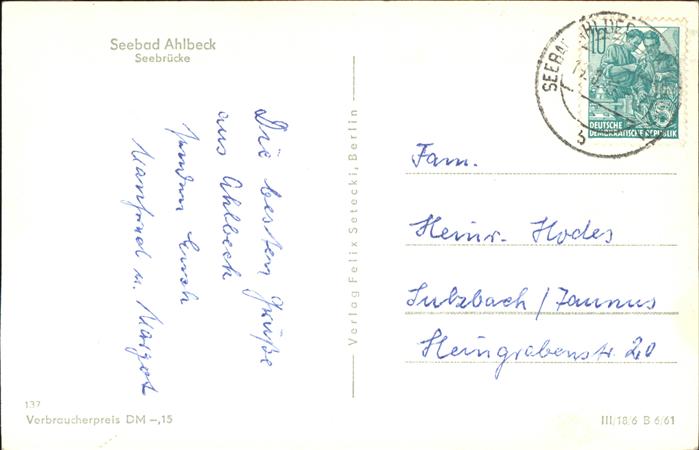 Seebad Ahlbeck
Seebrücke
Die besten Grüße
aus Ahlbeck
senden Euch
Manfred u. Margot
137
Verbraucherpreis DM –,15
Verlag Felix Setecki, Berlin
10
DEUTSCHE
DEMOKRATISCHE REPUBLIK
SEEBAD
b
Fam.
Heinr. Hodes
Sulzbach/Taunus
Heingrabenstr. 20
III/18/6 B 6/61